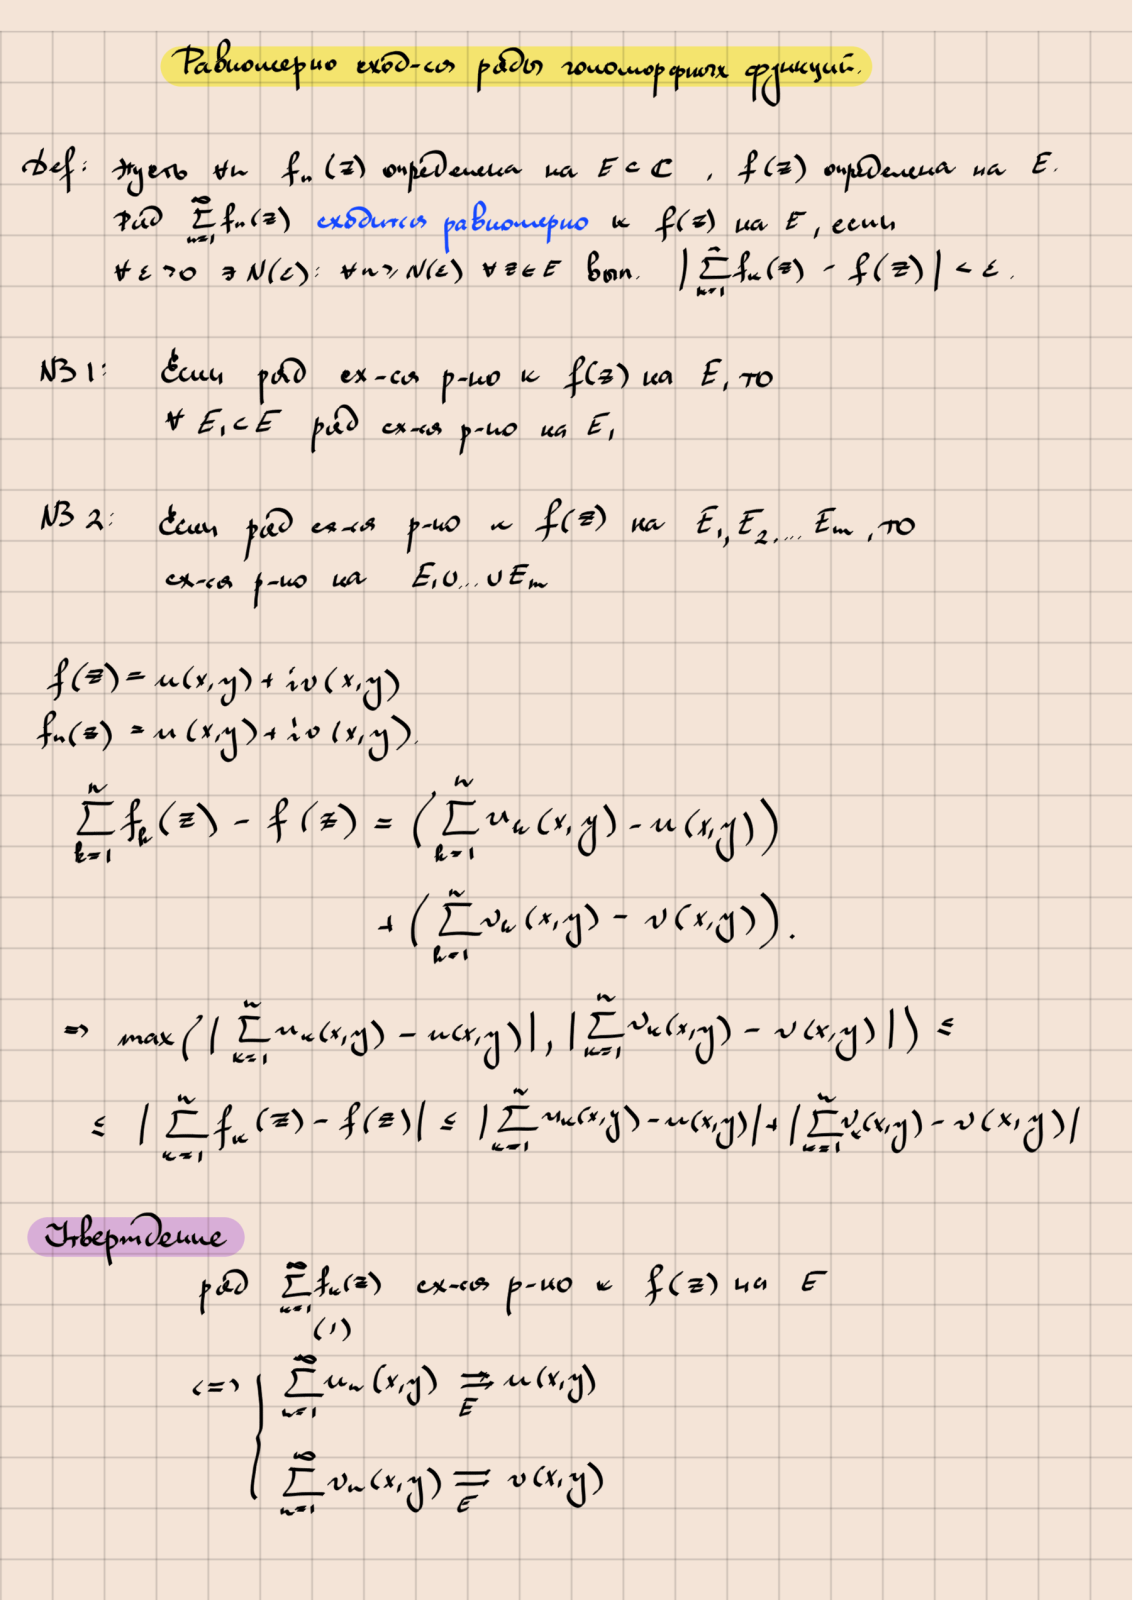 Равномерно сход-ся ряды голоморфных функций.
Def: Пусть ∀n fₙ(z) определена на E ⊂ ℂ, f(z) определена на E.
Ряд ∑_{n=1}^{∞} fₙ(z) сходится равномерно к f(z) на E, если
∀ε>0 ∃N(ε): ∀n≥N(ε) ∀z∈E вып. |∑_{k=1}^{n} fₖ(z) - f(z)| < ε.
NB 1: Если ряд сх-ся р-но к f(z) на E, то
∀ E₁⊂E ряд сх-ся р-но на E₁
NB 2: Если ряд сх-ся р-но к f(z) на E₁, E₂, ... Eₘ, то
сх-ся р-но на E₁∪...∪Eₘ
f(z) = u(x,y) + iv(x,y)
fₙ(z) = u(x,y) + iv(x,y).
∑_{k=1}^{n} fₖ(z) - f(z) = (∑_{k=1}^{n} uₖ(x,y) - u(x,y))
+ (∑_{k=1}^{n} vₖ(x,y) - v(x,y)).
=> max(|∑_{k=1}^{n} uₖ(x,y) - u(x,y)|, |∑_{k=1}^{n} vₖ(x,y) - v(x,y)|) ≤
≤ |∑_{k=1}^{n} fₖ(z) - f(z)| ≤ |∑_{k=1}^{n} uₖ(x,y) - u(x,y)| + |∑_{k=1}^{n} vₖ(x,y) - v(x,y)|
Утверждение
ряд ∑_{n=1}^{∞} fₙ(z) сх-ся р-но к f(z) на E
(1)
<=> { ∑_{n=1}^{∞} uₙ(x,y) ⇉_E u(x,y)
∑_{n=1}^{∞} vₙ(x,y) ⇉_E v(x,y)